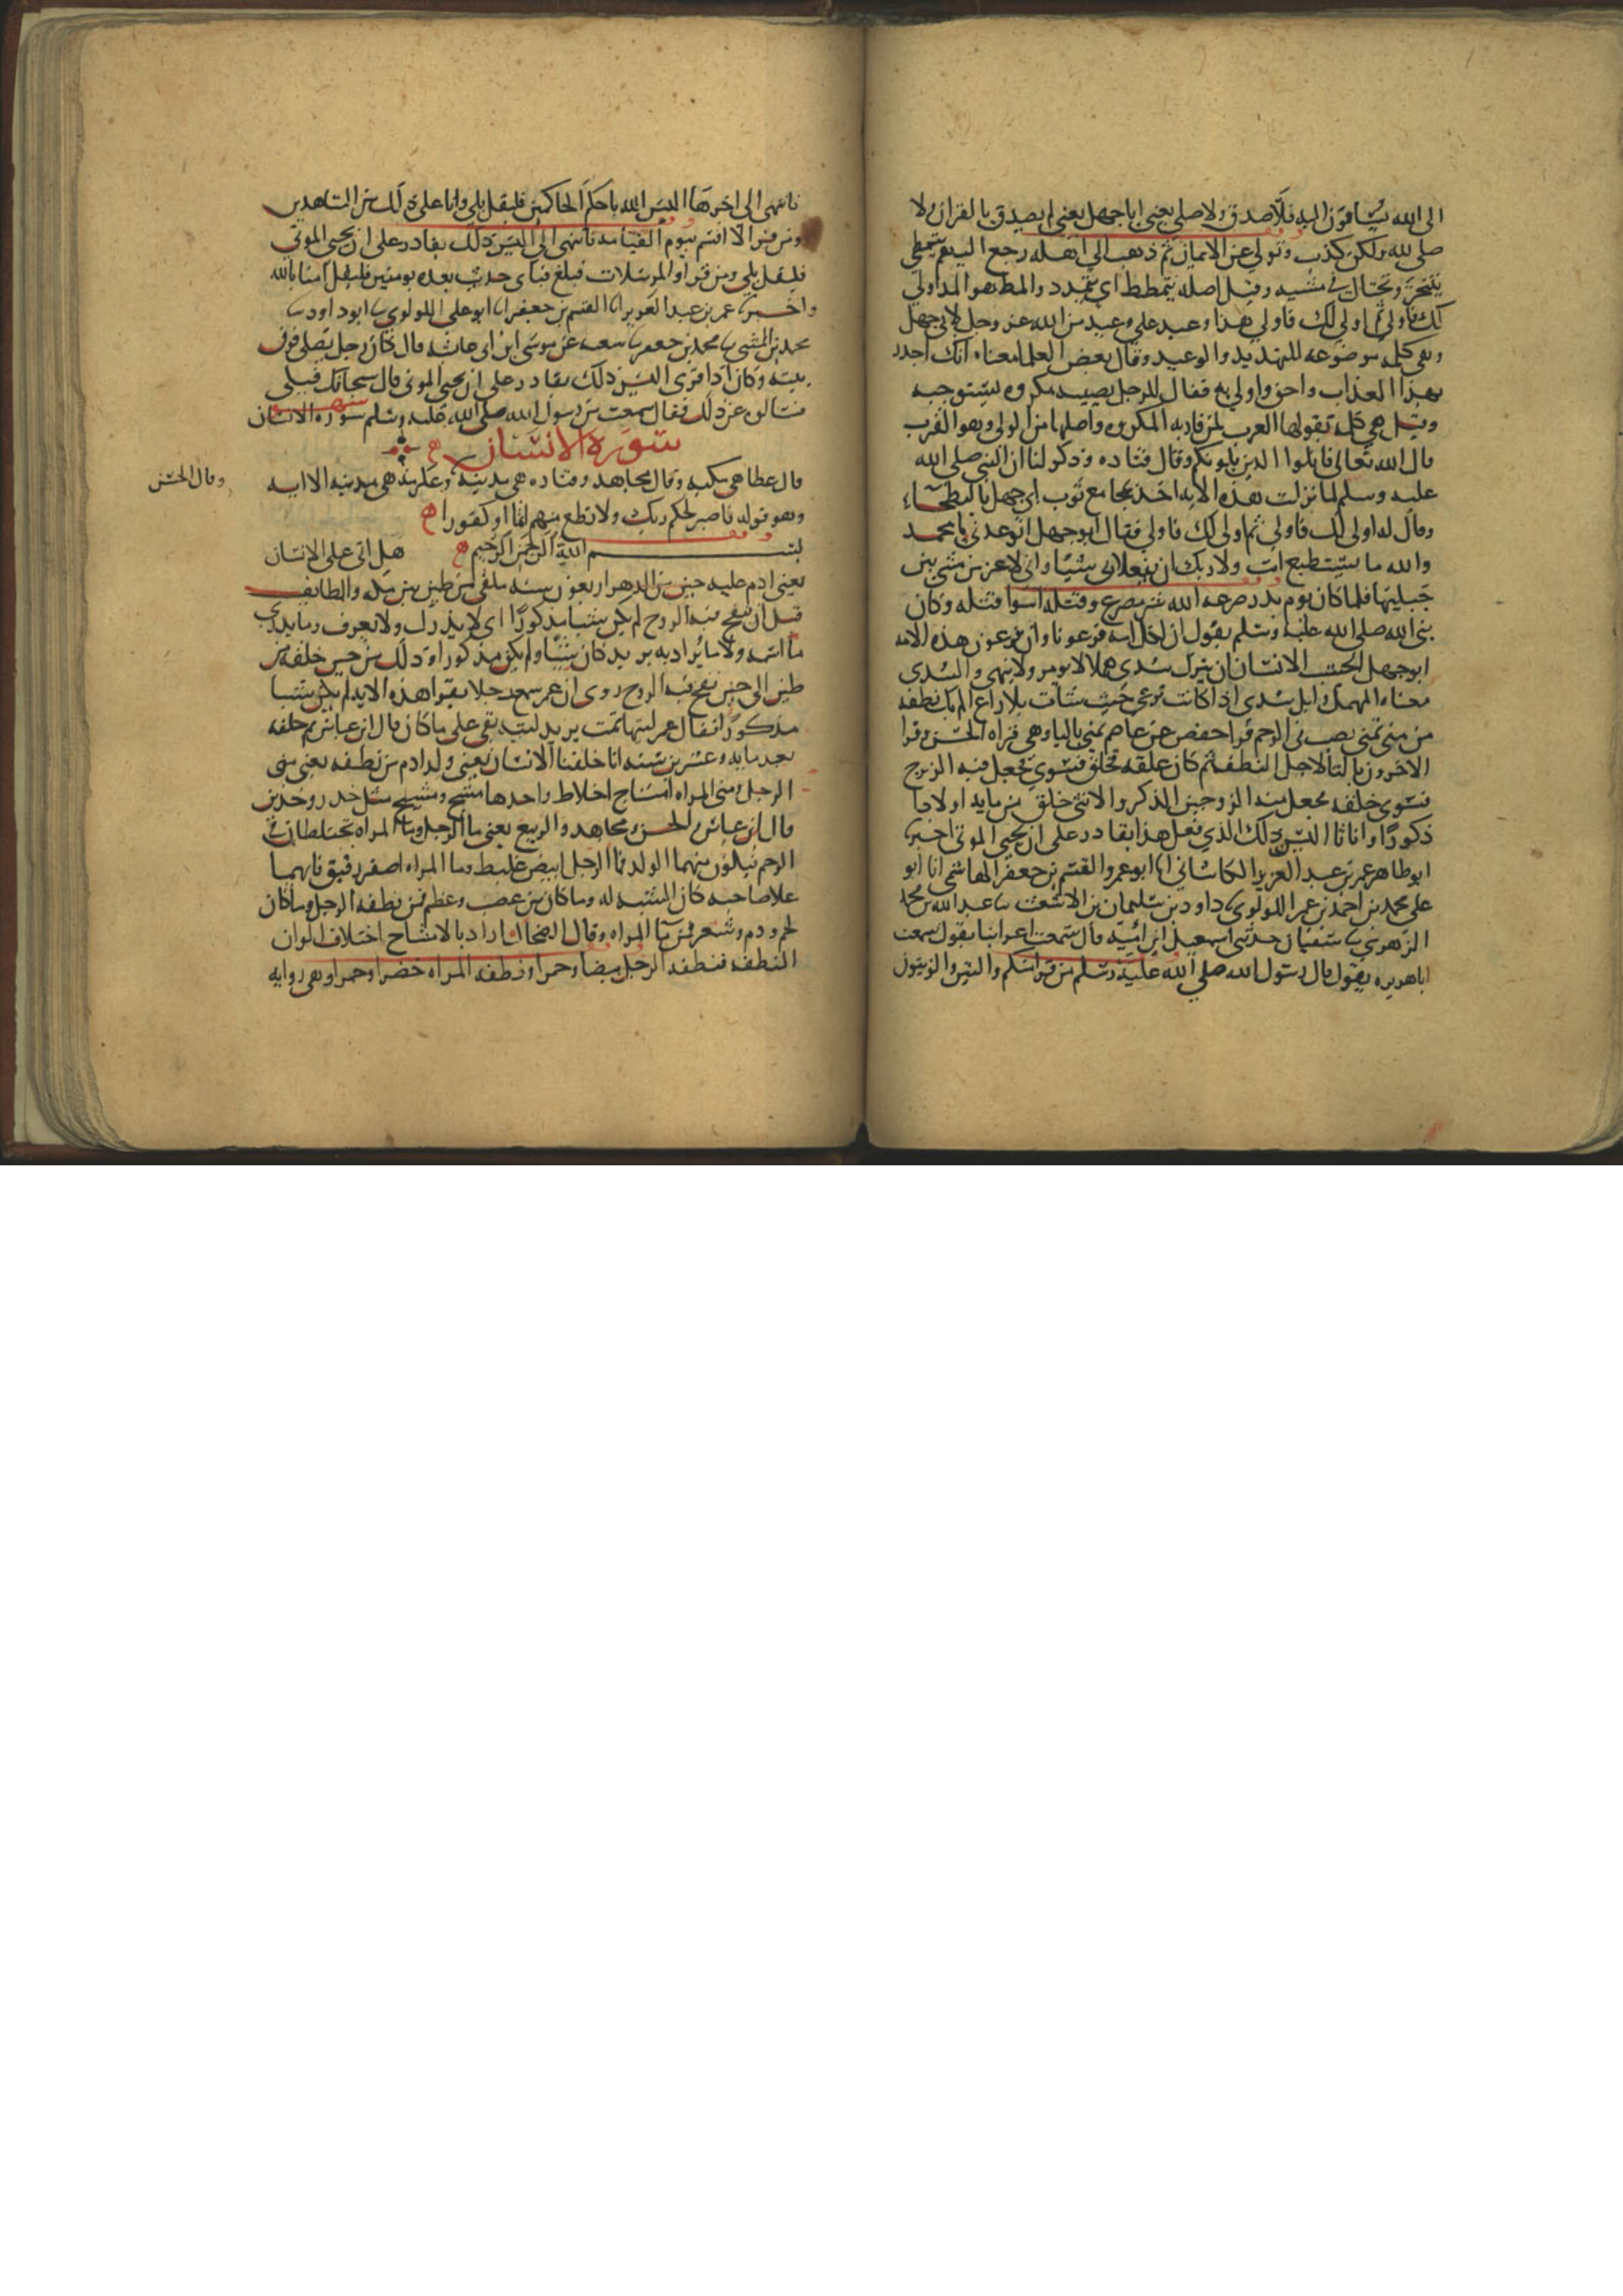 الى الله يساقون اليه فلا صدق ولا صلى يعني ابا جهل يعني لم يصدق بالقران ولا
صلى لله ولكن كذب وتولي عن الايمان ثم ذهب الي اهله رجع اليهم يتمطي
يتبختر ويختال في مشيه وقيل اصله يتمطط اي يتمدد والمط هو المد اولي
لك فاولي ثم اولي لك فاولي هذا وعيد علي وعيد من الله عز وجل لابي جهل
وهي كلمه موضوعه للتهديد والوعيد وقال بعض العلما معناه انك اجدر
بهذا العذاب واحق واولي به فقال للرجل يصيبه مكروه يستوجبه
وقيل هي كلمه تقولها العرب لمن قاربه المكروه واصلها من الولي وهو القرب
قال الله تعالى قاتلوا الذين يلونكم وقال قتاده وذكر لنا ان النبي صلى الله
عليه وسلم لما نزلت هذه الايه اخذ بمجامع ثوب ابي جهل بالبطحاء
وقال له اولى لك فاولي ثم اولى لك فاولي فقال ابو جهل اتوعدني يا محمد
والله ما يستطيع انت ولا ربك ان تفعلا بي شيئا واني لاعز من مشى بين
جبليها فلما كان يوم بدر صرعه الله شر مصرع وقتله اسوا قتله وكان
نبي الله صلى الله عليه وسلم يقول ان لكل امه فرعونا وان فرعون هذه الامه
ابو جهل ايحسب الانسان ان يترك سدى هملا لا يومر ولا ينهى والسدى
معناه المهمل وابل سدى اذا كانت ترعى حيث شات بلا راع الم يك نطفه
من مني تمنى يصب في الرحم قرا حفص عن عاصم يمني بالياء وهي قراه الحسن وقرا
الاخرون بالتا لاجل النطفه ثم كان علقه فخلق فسوى فجعل فيه الروح
فسوى خلقه فجعل منه الزوجين الذكر والانثى خلق من مايه اولادا
ذكورا واناثا اليس ذلك الذي فعل هذا بقادر على ان يحيي الموتى اخبرنا
ابو طاهر عمر بن عبد العزيز الكاشاني انا ابو عمرو القسم بن جعفر الهاشمي انا ابو
علي محمد بن احمد بن عمر اللولوي نا داود بن سليمان بن الاشعث نا عبد الله بن محمد
الزهري نا سفيان حدثني اسمعيل بن امية قال سمعت اعرابيا يقول سمعت
ابا هريره يقول قال رسول الله صلى الله عليه وسلم من قرا منكم والتين والزيتون
فانتهى الى اخرها اليس الله باحكم الحاكمين فليقل بلي وانا على ذلك من الشاهدين
ومن قرا لا اقسم بيوم القيامه فانتهى الى اليس ذلك بقادر على ان يحيي الموتى
فليقل بلي ومن قرا والمرسلات فبلغ فباي حديث بعده يومنون فليقل امنا بالله
واخبرنا عمر بن عبد العزيز انا القسم بن جعفر انا ابو على اللولوي نا ابو داود نا
محمد بن المثنى نا محمد بن جعفر نا شعبه عن موسى ابن ابى عايشه قال كان رجل يصلي فوق
بيته وكان اذا قرى اليس ذلك بقادر على ان يحيي الموتى قال سبحانك فبلى
فسالوه عن ذلك فقال سمعت من رسول الله صلى الله عليه وسلم سوره الانسان
سورة الانسان
قال عطا هي مكيه وقال مجاهد وقتاده هي مدينه وعكرمه هي مدينه الا ايه
وقال الحسن
وهو قوله فاصبر لحكم ربك ولا تطع منهم اثما او كفورا
بسم الله الرحمن الرحيم هل اتى على الانسان
يعني ادم عليه حين من الدهر اربعون سنه ملقى من طين بين مكه والطايف
قبل ان ينفخ فيه الروح لم يكن شيا مذكورا اي لا يذكر ولا يعرف وما يدرى
ما اسمه ولا ما يراد به يريد كان شيئا ولم يكن مذكورا وذلك من حين خلقه من
طين الى حين نفخ فيه الروح روى ان عمر سمع رجلا يقرا هذه الايه لم يكن شيا
مذكورا فقال عمر ليتها تمت يريد ليته بقي على ما كان قال ابن عباس ثم خلقه
بعد مايه وعشرين سنه انا خلقنا الانسان يعني ولد ادم من نطفه يعني مني
الرجل ومني المراه امشاج اخلاط واحدها مشج ومشيج مثل خدن وخدين
قال ابن عباس والحسن ومجاهد والربيع يعني ما الرجل وما المراه تختلطان في
الرحم فيكون منهما الولد فما الرجل ابيض غليظ وما المراه اصفر رقيق فايهما
علا صاحبه كان الشبه له وما كان من عصب وعظم فمن نطفه الرجل وما كان
لحم ودم وشعر فمن ما المراه وقال الضحاك اراد بالامشاج اختلاف الوان
النطفه فنطفه الرجل بيضا وحمرا ونطفه المراه خضرا وحمرا وهي روايه